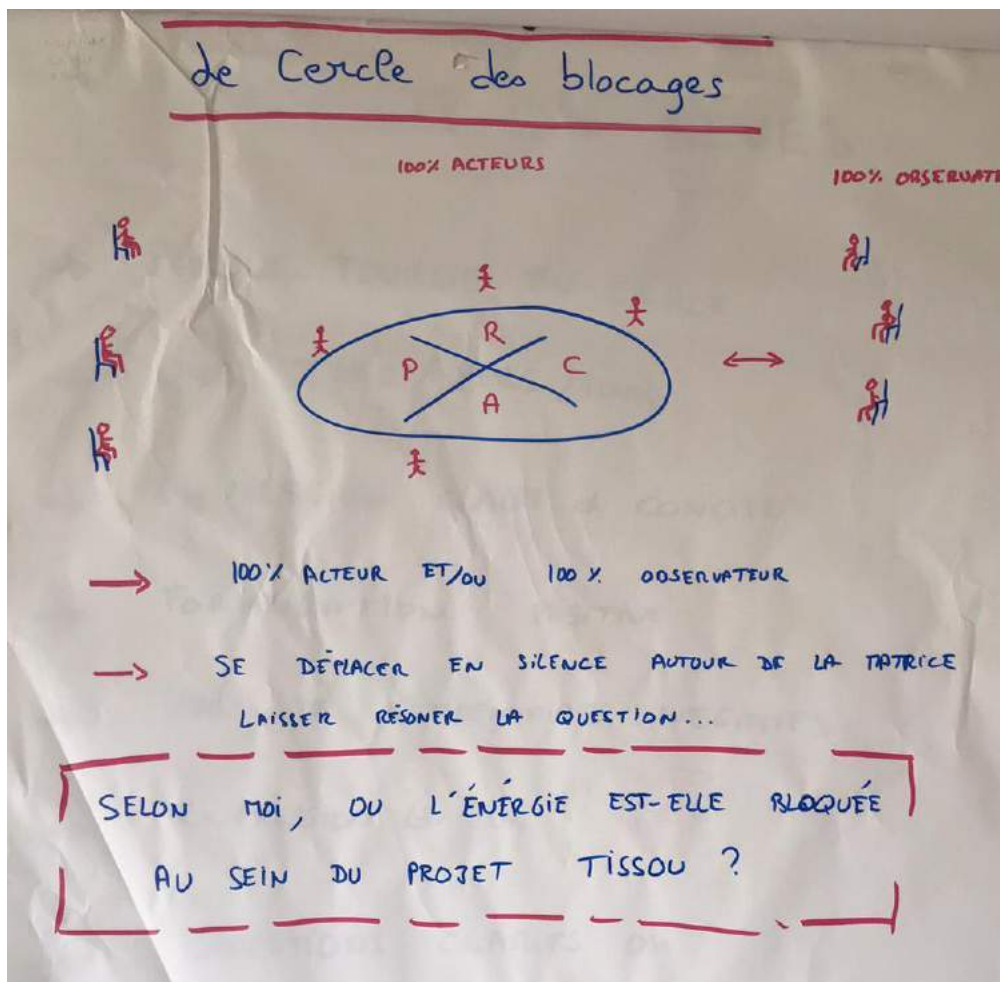 de Cercle des blocages
100% ACTEURS
100% OBSERVATE
R
P
C
A
→ 100% ACTEUR ET/OU 100% OBSERVATEUR
→ SE DÉPLACER EN SILENCE AUTOUR DE LA MATRICE
LAISSER RÉSONER LA QUESTION...
SELON MOI, OU L'ÉNÉRGIE EST-ELLE BLOQUÉE
AU SEIN DU PROJET TISSOU ?